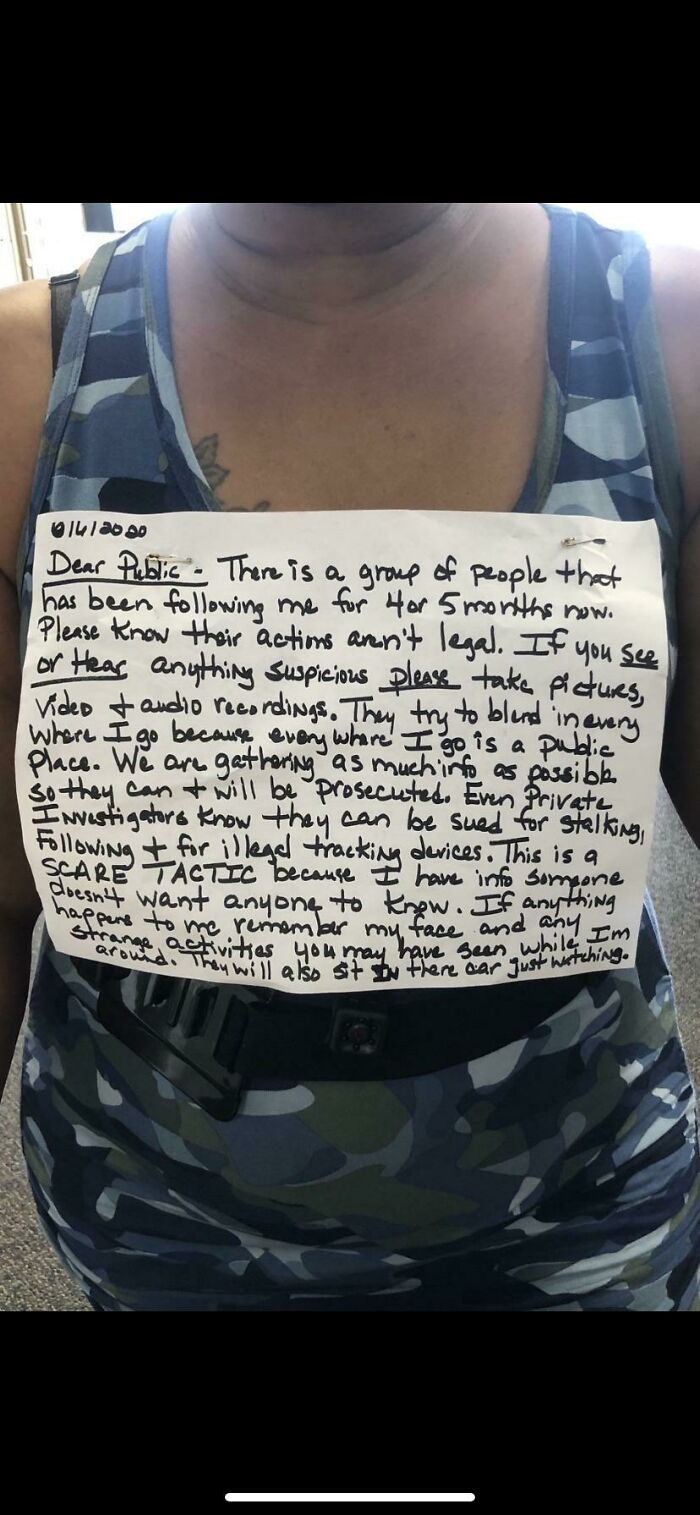 6/6/2020
Dear Public - There is a group of people that
has been following me for 4 or 5 months now.
Please know their actions aren't legal. If you see
or Hear anything suspicious please take pictures,
video + audio recordings. They try to blend in every
where I go because everywhere I go is a public
Place. We are gathering as much info as possible
so they can + will be prosecuted. Even Private
Investigators know they can be sued for stalking,
Following + for illegal tracking devices. This is a
SCARE TACTIC because I have info someone
doesn't want anyone to know. If anything
happens to me remember my face and any
strange activities you may have seen while I'm
around. They will also sit IN there car just watching.